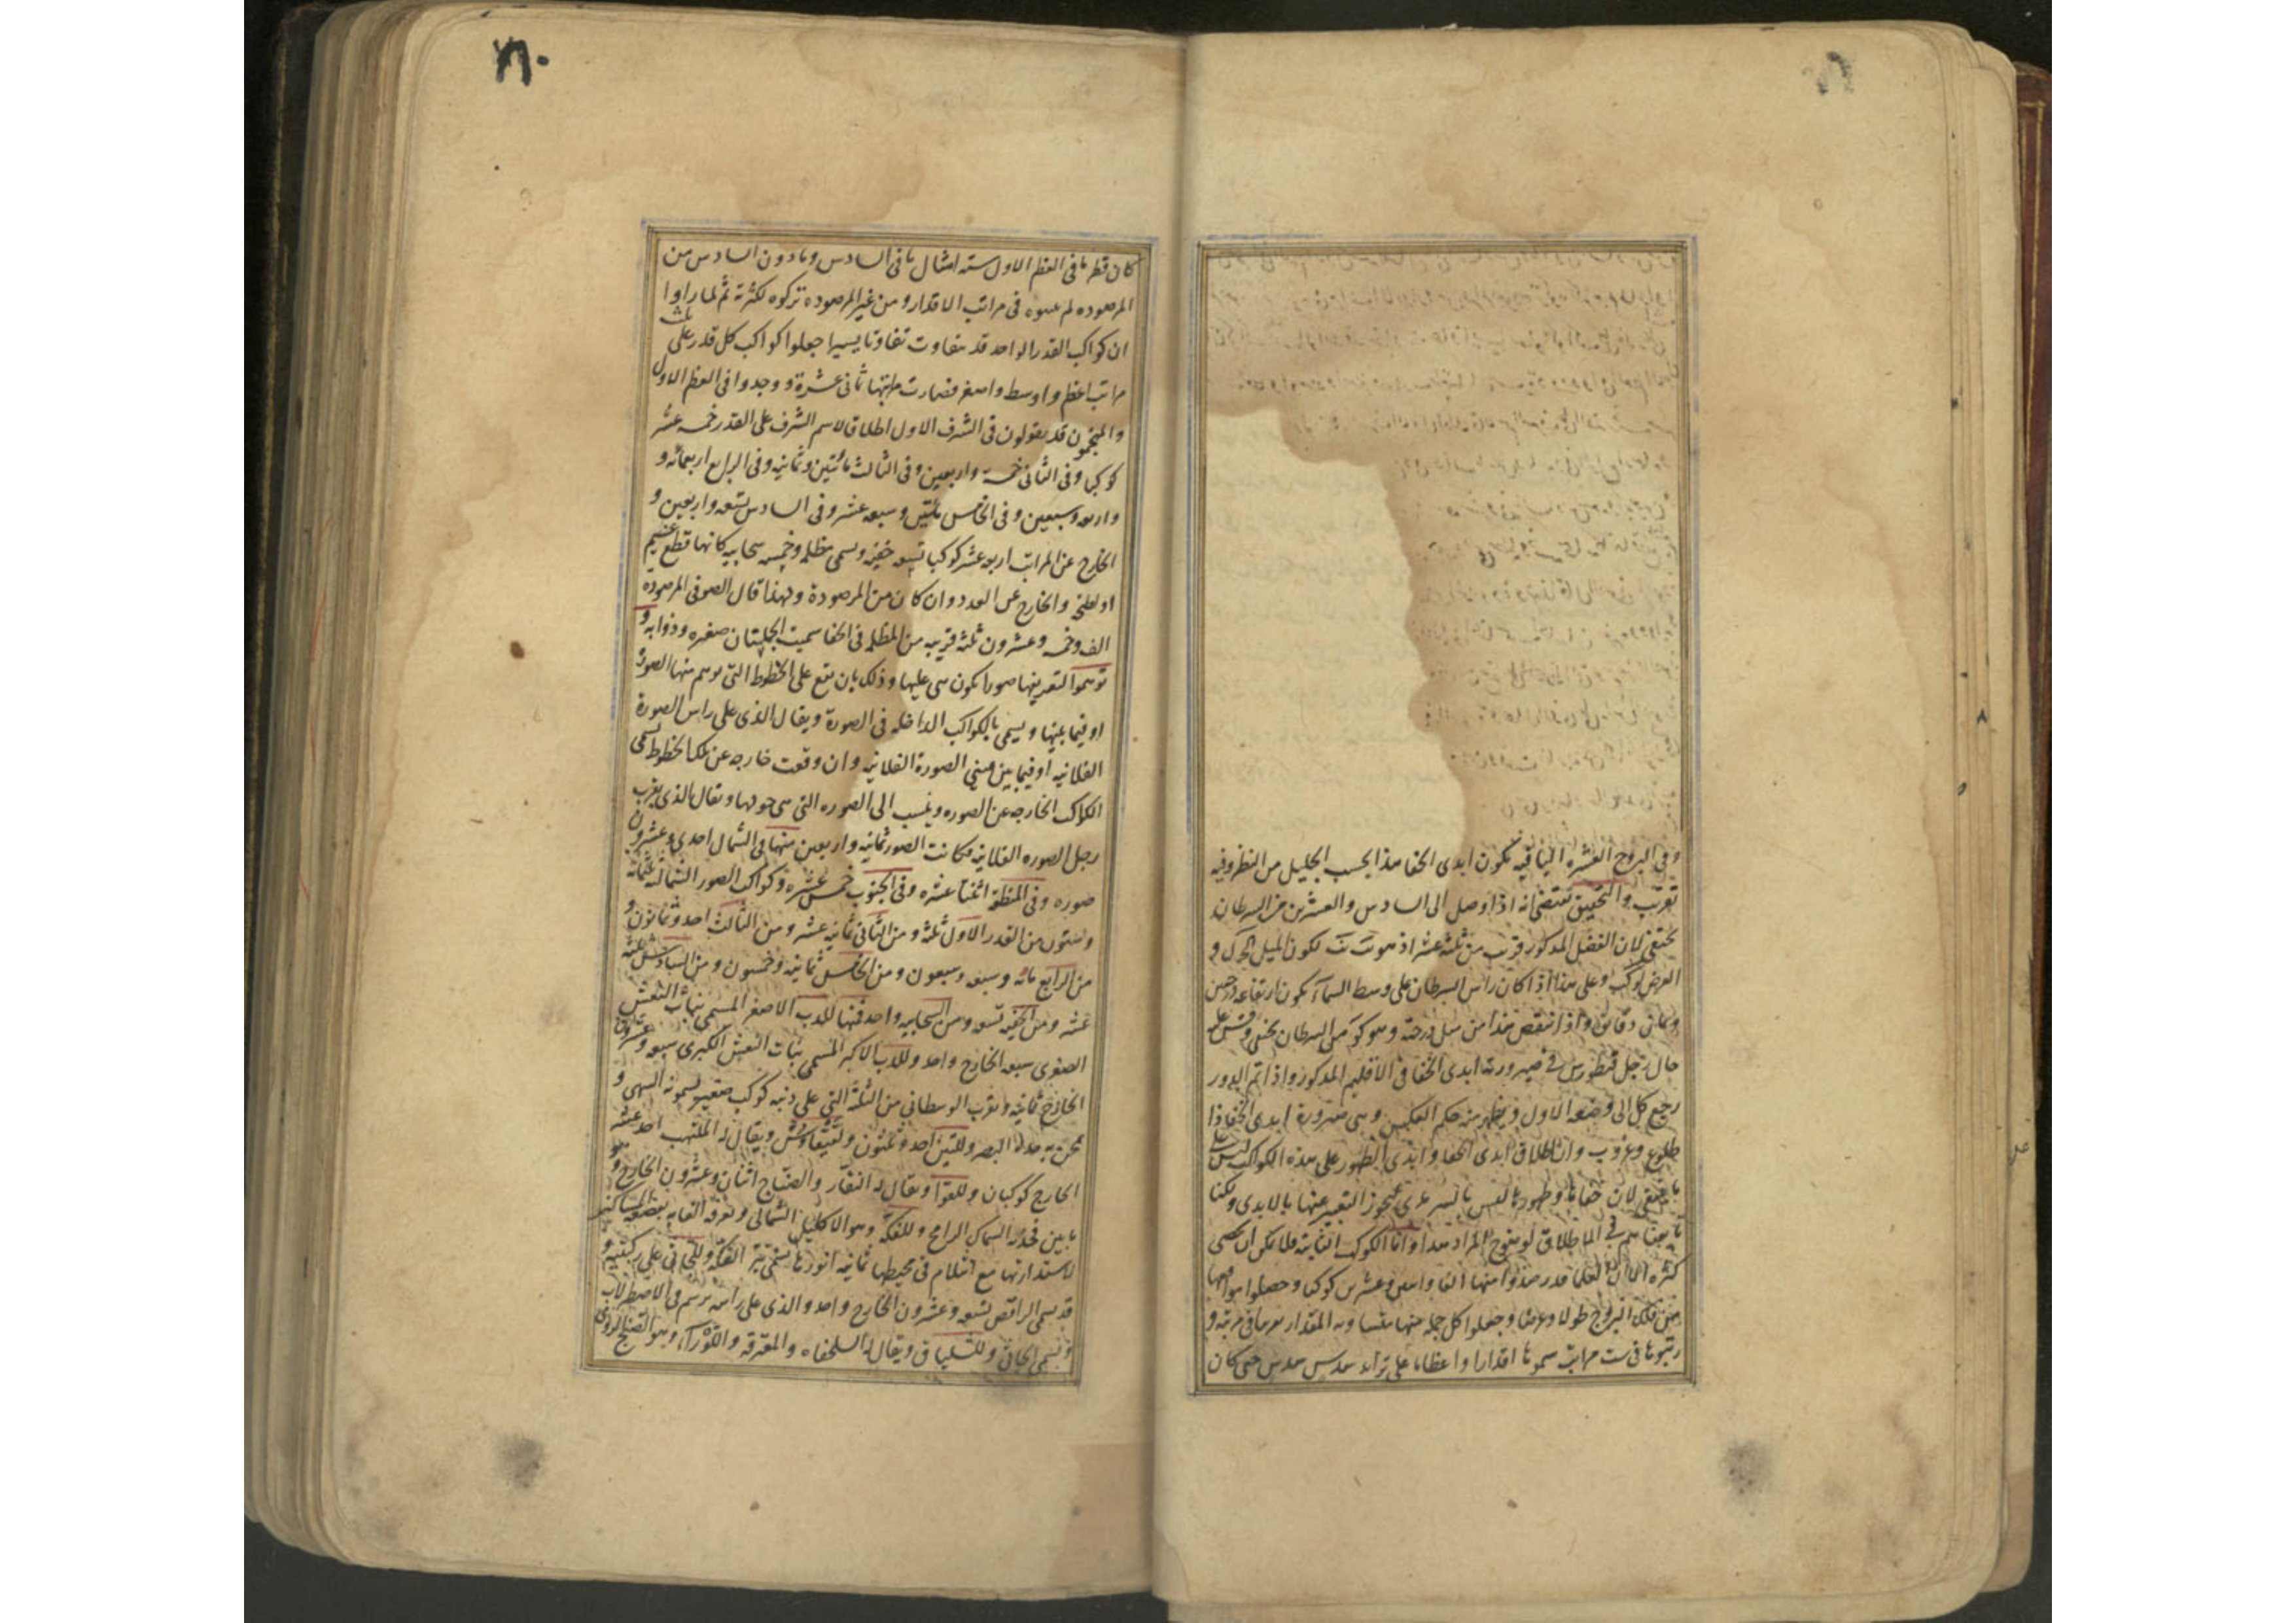 وفى البروج العشره الباقيه تكون ابدى الخفا هذا بحسب الجليل من النظر وفيه
تقريب والتحقيق يقتضى انه اذا وصل الى السادس والعشرين من السرطان
يختفى لان الفضل المذكور قريب من ثلثة عشر اذ هو لكون الميل
العرض وعلى هذا اذا كان راس السرطان على وسط السمآ يكون ارتفاعه
وثمانى دقائق واذا انتقص هذا من ميل درجة وهو من السرطان يختفى وقس عليه
حال رجل قنطورس فى صيرورته ابدى الخفا فى الاقليم المذكور واذا تم الدور
رجع كل الى وضعه الاول ويظهر منه حكم العكس وهى صرورة ابدى الخفا ذا
طلوع وغروب وان اطلاق ابدى الخفا وابدى الظهور على هذه الكواكب ليس على
ما ينبغى لان خفاها وظهورها ليس بالسرمدى فيجوز التعبير عنها بالابدى ولكنا
تابعناهم فى الاطلاق لوضوح المراد هذا واما الكواكب الثابتة فلا يمكن ان تحصى
كثرة الا ان القدما قد رصدوا منها الفا واثنين وعشرين كوكبا وحصلوا مواضعها
من فلك البروج طولا وعرضا وجعلوا كل جملة منها متساويه المقدار فى مرتبة و
رتبوها فى ست مراتب سموها اقدارا واعظاما على تزايد سدس سدس حتى كان
٦٠
كان قطر ما فى العظم الاول ستة امثال ما فى السادس وما دون السادس من
المرصوده لم يثبتوه فى مراتب الاقدار ومن غير المرصوده تركوه لكثرته ثم لما راوا
ان كواكب القدر الواحد قد يتفاوت تفاوتا يسيرا جعلوا كواكب كل قدر على ثلث
مراتب اعظم واوسط واصغر فصارت مراتبها ثمانى عشرة ووجدوا فى العظم الاول
والمنجمون قد يقولون فى الشرف الاول اطلاق لاسم الشرف على القدر خمسه عشر
كوكبا وفى الثانى خمسة واربعين وفى الثالث مائتين وثمانية وفى الرابع اربعمائة و
واربعه وسبعين وفى الخامس مائتين وسبعه عشر وفى السادس تسعه واربعين و
الخارج عن المراتب اربعه عشر كوكبا تسعه خفيه ويسمى مظلمه وخمسه سحابيه كانها قطع غيم
او لطخه والخارج عن العدد وان كان من المرصودة ولهذا قال الصوفى المرصودة
الف وخمسه وعشرون ثلثه قريبه من المظلمه فى الخفا سميت الجليتان صفيره وذوابه و
توهموا لتعريفها صورا تكون هى عليها وذلك بان تقع على الخطوط التى توهم منها الصورة
او فيما بينها ويسمى بالكواكب الداخله فى الصورة ويقال الذى على راس الصورة
الفلانيه او فيما بين عينى الصورة الفلانيه وان وقعت خارجه عن تلك الخطوط تسمى
الكواكب الخارجه عن الصوره وينسب الى الصوره التى هى حولها ويقال الذى بقرب
رجل الصوره الفلانيه فكانت الصور ثمانيه واربعين منها فى الشمال احدى وعشرون
صوره وفى المنطقه اثنتا عشره وفى الجنوب خمس عشره وكواكب الصور الشماليه ثلثمائة
وستون من القدر الاول ثلثة ومن الثانى ثمانيه عشر ومن الثالث احد وثمانون و
من الرابع مائه وسبعه وسبعون ومن الخامس ثمانيه وخمسون ومن السادس ثلثة
عشر ومن الخفيه تسعه ومن السحابيه واحد فمنها للدب الاصغر المسمى ببنات النعش
الصغرى سبعه الخارج واحد وللدب الاكبر المسمى بنات النعش الكبرى سبعه وعشرون
الخارج ثمانيه وبقرب الوسطانى من الثلثة التى على ذنبه كوكب صغير يسمونه السهى و
يمتحن به حدة البصر وللتنين احد وثلثون ولقيقاوس ويقال له الملتهب احد عشر
الخارج كوكبان وللعوا ويقال له النقار والصناج اثنان وعشرون الخارج و هو
ما بين فخذيه السماك الرامح وللفكة وهو الاكليل الشمالى وتعرفه العامه بقصعه المساكين
لاستدارتها مع انثلام فى محيطها ثمانيه انورها يسمى نير الفكة وللجاثى على ركبتيه و
قد يسمى الراقص تسعه وعشرون الخارج واحد والذى على راسه يرسم فى الاصطرلاب
ويسمى الجاثى وللشلياق ويقال له السلحفاه والمعزفة واللورا وهو الصنج الرومى